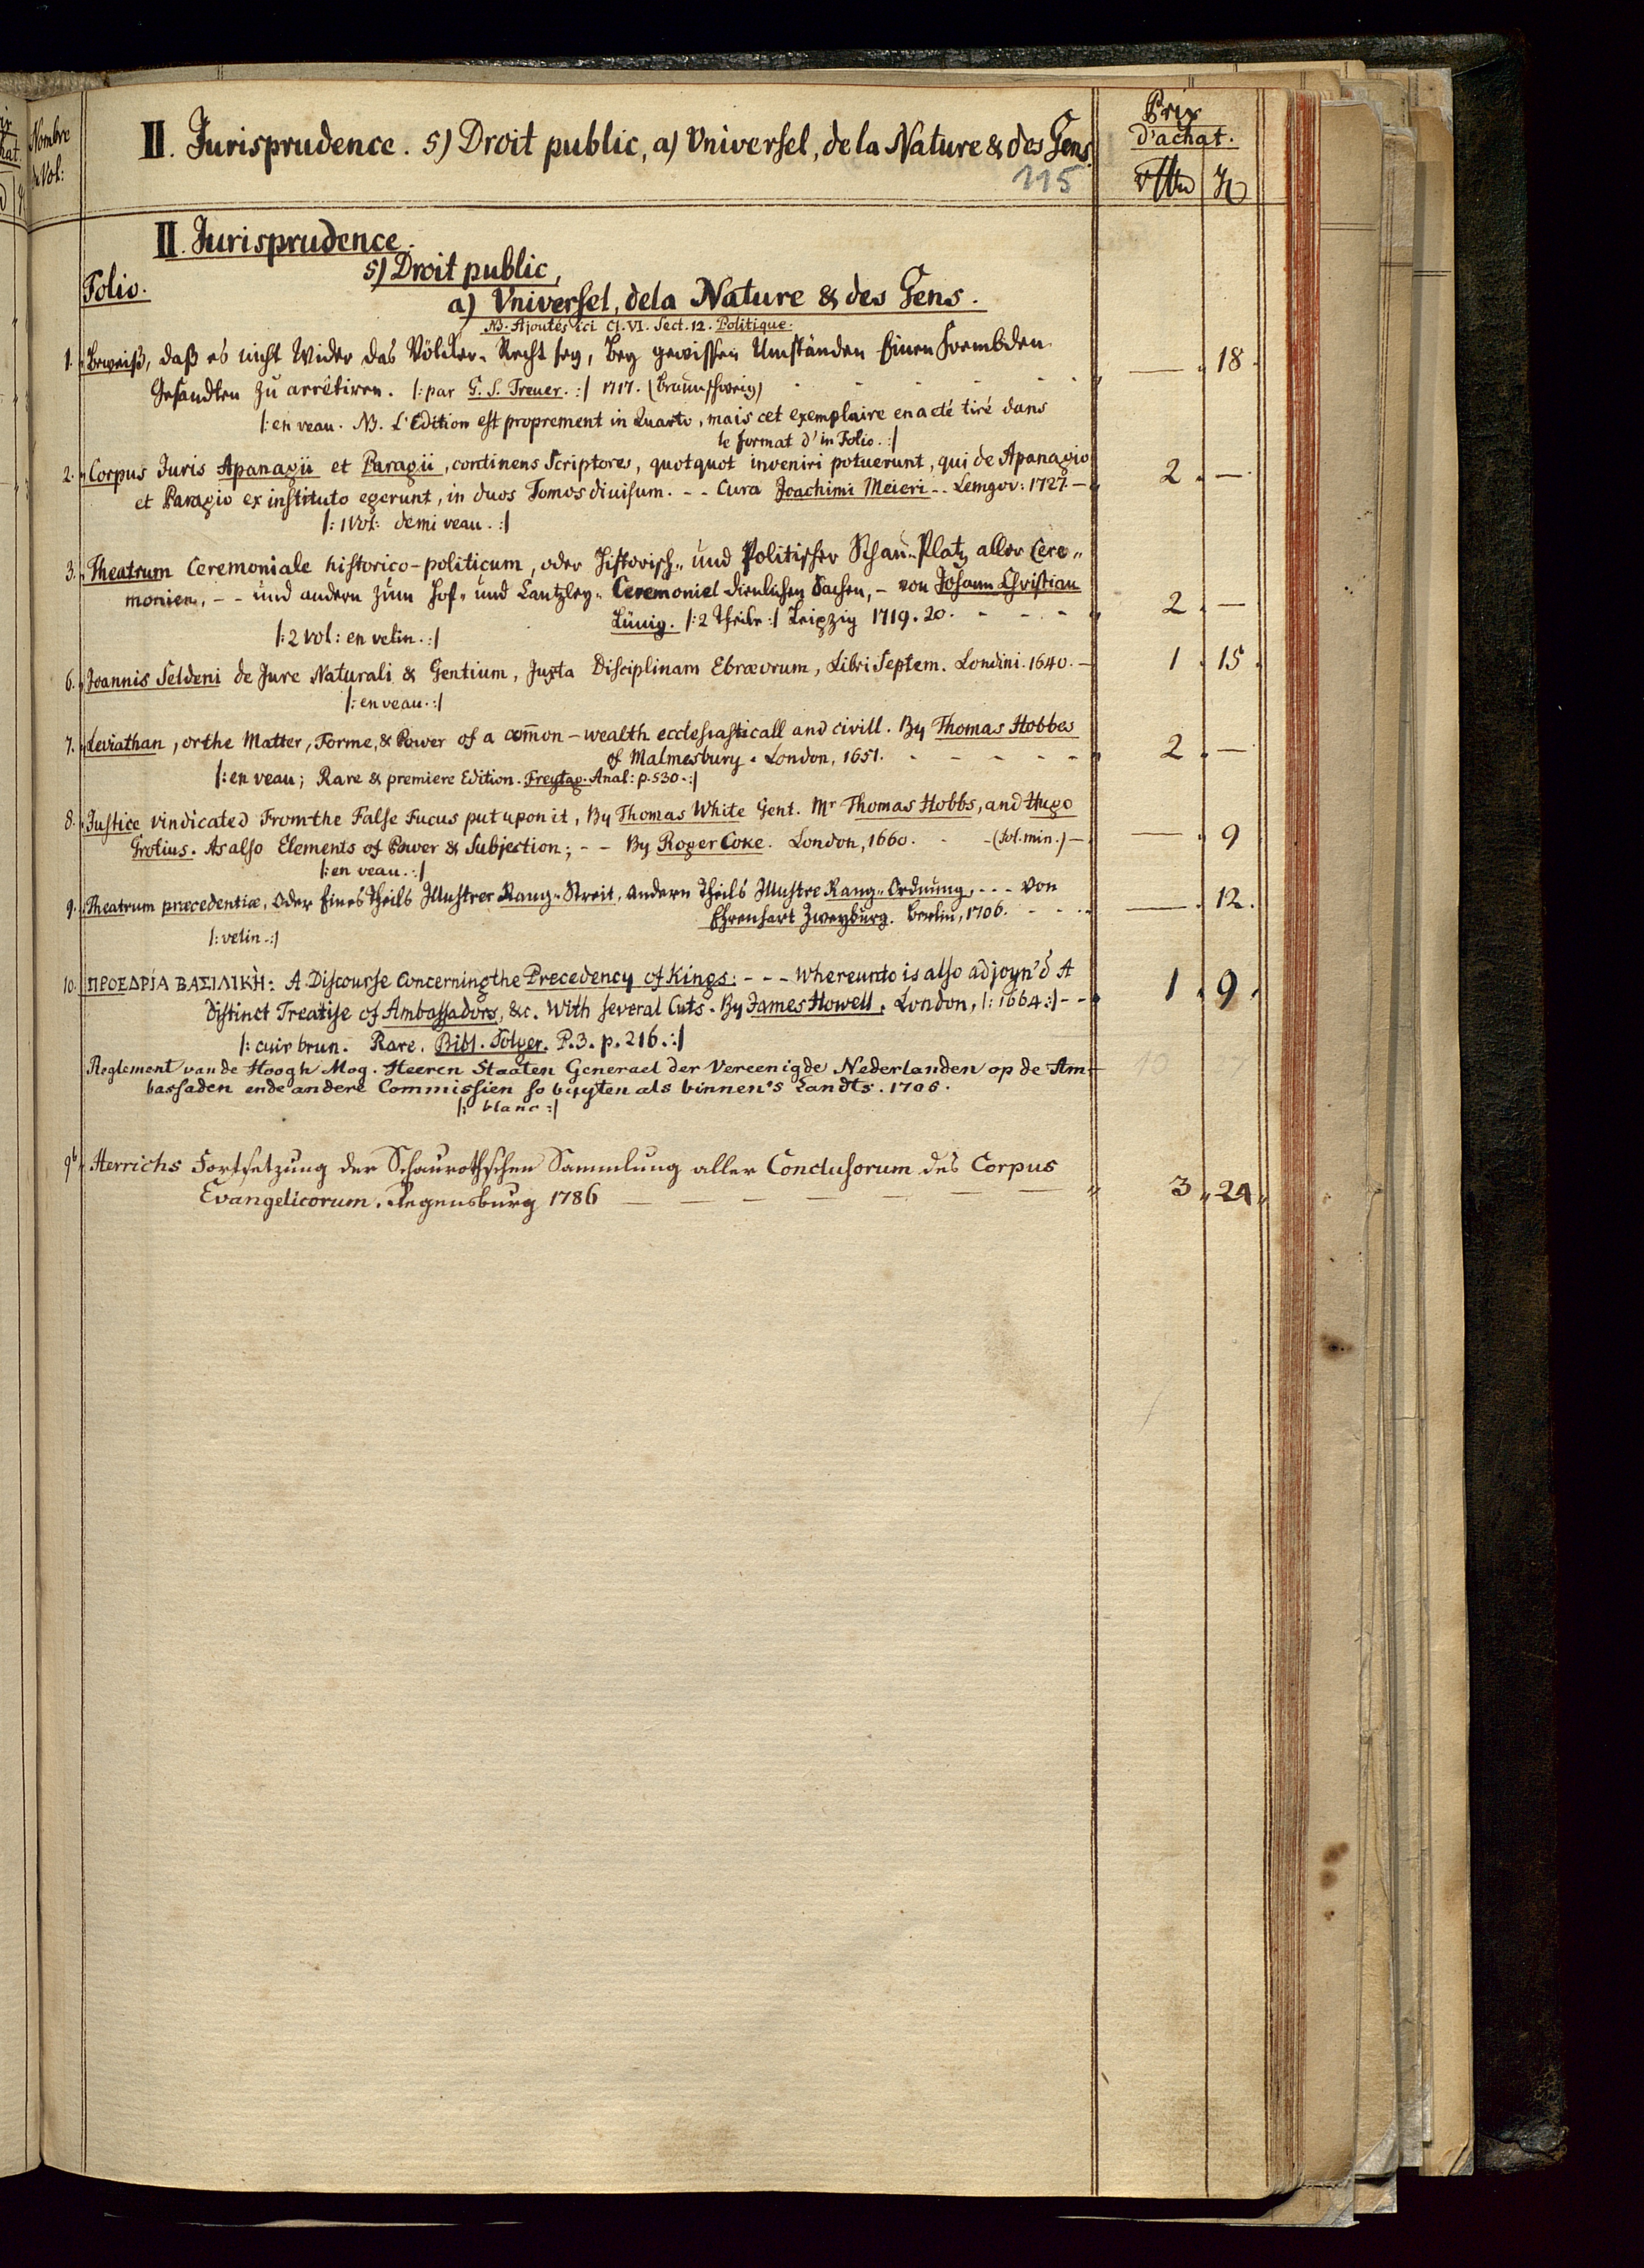 II. Jurisprudence. 5) Droit public, a) Universel, de la Nature & des Gens.
115
Prix
d'achat.
Nombre
de Vol:
II. Jurisprudence.
5) Droit public,
Folio.
a) Universel, de la Nature & des Gens.
NB. Ajoutés ici Cl. VI. Sect. 12. Politique.
1. Beweiß, daß es nicht Wider das Völcker-Recht sey, Bey gewissen Umständen Einen Frembden
Gesandten zu arrêtiren. |: par G. S. Treuer. :| 1717. (Braunschweig) - - - - - 18
|: en veau. NB. L'Edition est proprement in Quarto, mais cet exemplaire en a eté tiré dans
le format d'in Folio. :|
2. Corpus Juris Apanagii et Paragii, continens Scriptores, quotquot inveniri potuerunt, qui de Apanagio
et Paragio ex instituto egerunt, in duos Tomos divisum. - - Cura Joachimi Meieri - - Lemgov: 1727. — 2. —
|: 1 Vol: demi veau. :|
3. Theatrum Ceremoniale historico-politicum, oder Historisch- und Politischer Schau-Platz aller Cere-
monien, - - und andern zum Hof- und Cantzley- Ceremoniel dienlichen Sachen, - von Johann Christian
Lünig. |: 2 Theile :| Leipzig 1719. 20. - - - 2. —
|: 2 Vol: en velin. :|
6. Joannis Seldeni de Jure Naturali & Gentium, Juxta Disciplinam Ebræorum, Libri Septem. Londini. 1640. — 1. 15.
|: en veau. :|
7. Leviathan, or the Matter, Forme, & Power of a com̄on-wealth ecclesiasticall and civill. By Thomas Hobbes
of Malmesbury. London, 1651. - - - - - 2. —
|: en veau; Rare & premiere Edition. Freytag. Anal: p. 530. :|
8. Justice vindicated From the False Fucus put upon it, By Thomas White Gent. Mr Thomas Hobbs, and Hugo
Grotius. As also Elements of Power & Subjection; - - By Roger Coke. London, 1660. - - (fol. min.) — — . 9
|: en veau. :|
9. Theatrum præcedentiæ, oder Eines Theils Illustrer Rang-Streit, andern Theils Illustre Rang-Ordnung, - - - von
Ehrenhart Zweyburg. Berlin, 1706. - - - — . 12.
|: velin. :|
10. ΠΡΟΕΔΡΊΑ ΒΑΣΙΛΙΚΉ: A Discourse Concerning the Precedency of Kings: - - - Whereunto is also adjoyn'd A
Distinct Treatise of Ambassadors, &c. With several Cuts. By James Howell. London, |: 1664 :| - - 1. 9.
|: cuir brun. Rare. Bibl. Solger. P. 3. p. 216. :|
Reglement van de Hoogh Mog. Heeren Staaten Generael der Vereenigde Nederlanden op de Am-
bassaden ende andere Commissien so buyten als binnen's Landts. 1706.
|: blanc :|
9b. Herrichs Fortsetzung der Schaurothschen Sammlung aller Conclusorum des Corpus
Evangelicorum. Regensburg 1786 — — — — — — 3 „ 24 „